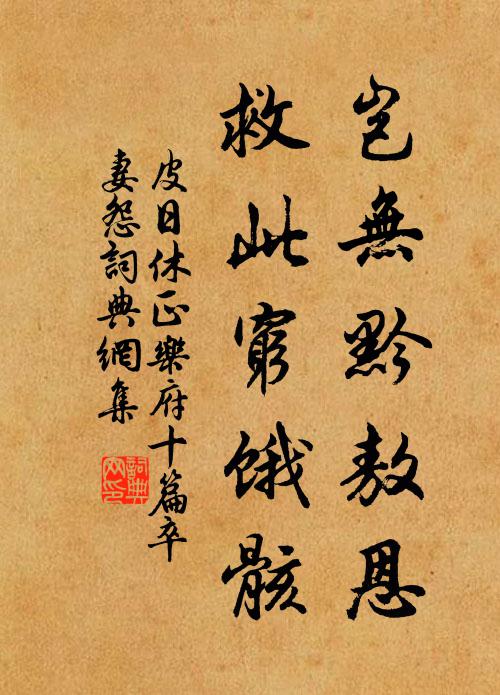 豈無黔敖恩
救此窮餓骸
皮日休正樂府十篇卒
妻怨詞典網集
詞典